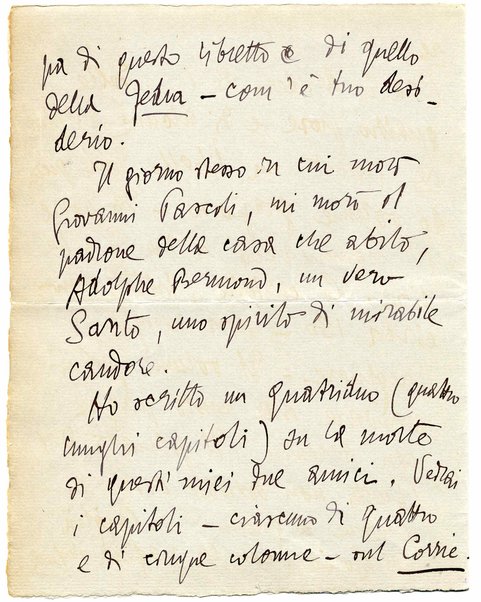 pa di questo libretto e di quello
della Fedra – com'è tuo desi-
derio.
Il giorno stesso in cui morì
Giovanni Pascoli, mi morì il
padrone della casa che abito,
Adolphe Bermond, un vero
Santo, uno spirito di mirabile
candore.
Ho scritto un quatriduo (quattro
lunghi capitoli) su la morte
di questi miei due amici. Vedrai
i capitoli – ciascuno di quattro
e di cinque colonne – sul Corrie.